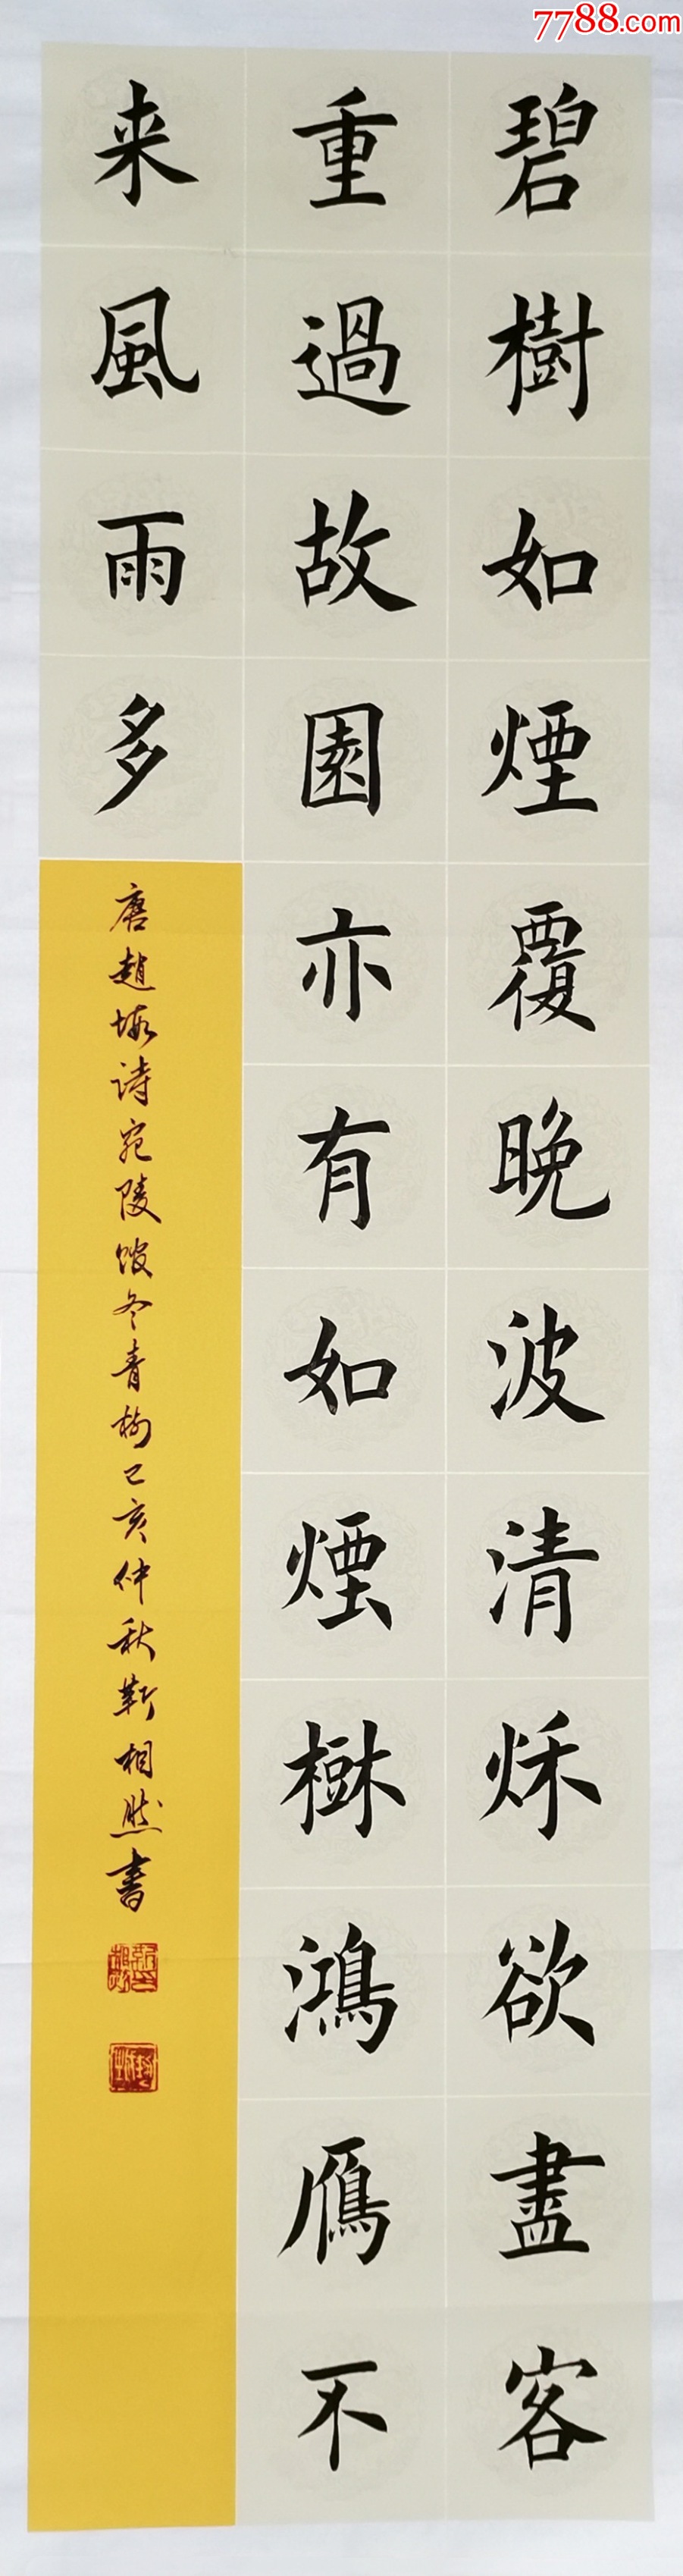 碧樹如煙覆晚波清秌欲盡客
重過故園亦有如煙樹鴻鴈不
来風雨多
唐趙嘏诗宛陵馆冬青樹己亥仲秋靳相然書
7788.com